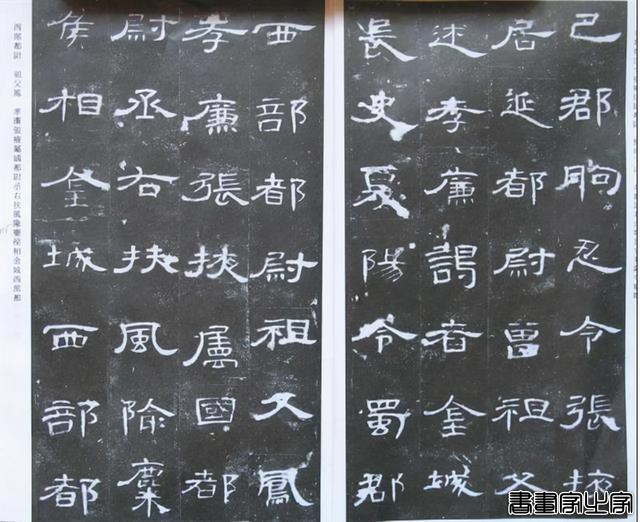 巴郡朐忍令張掖
居延都尉曾祖父
述孝廉謁者金城
長史夏陽令蜀郡
西部都尉祖父鳳
孝廉張掖屬國都
尉丞右扶風隃麋
侯相金城西部都
西部都尉 祖父鳳 孝廉張掖屬國都尉丞右扶風隃麋侯相金城西部都
書畫家之家